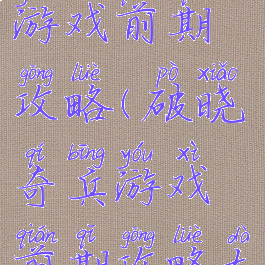 游戏前期
gōng lüè pò xiǎo
攻略(破晓
qí bīng yóu xì
奇兵游戏
qián qī gōng lüè dà
前期攻略大